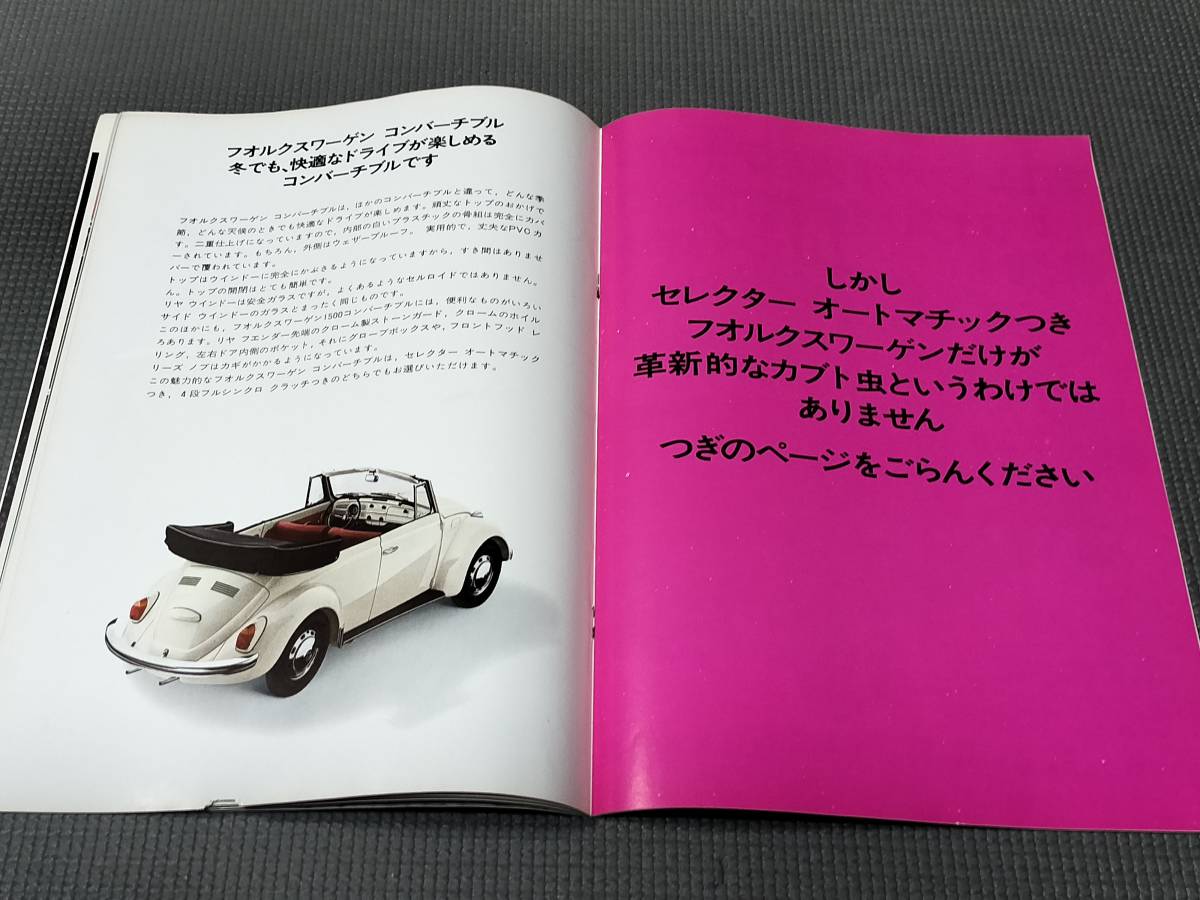 フオルクスワーゲン コンバーチブル
冬でも、快適なドライブが楽しめる
コンバーチブルです
フオルクスワーゲン コンバーチブルは，ほかのコンバーチブルと違って，どんな季
節，どんな天候のときでも快適なドライブが楽しめます。頑丈なトップのおかげで
す。二重仕上げになっていますので，内部の白いプラスチックの骨組は完全にカバ
ーされています。もちろん，外側はウェザープルーフ。 実用的で，丈夫なPVCカ
バーで覆われています。
トップはウインドーに完全にかぶさるようになっていますから，すき間はありませ
ん。トップの開閉はとても簡単です。
リヤ ウインドーは安全ガラスですが，よくあるようなセルロイドではありません。
サイド ウインドーのガラスとまったく同じものです。
このほかにも，フオルクスワーゲン1500コンバーチブルには，便利なものがいろい
ろあります。リヤ フエンダー先端のクローム製ストーンガード，クロームのホイル
リング，左右ドア内側のポケット，それにグローブボックスや，フロントフッド レ
リーズ ノブはカギがかかるようになっています。
この魅力的なフオルクスワーゲン コンバーチブルは，セレクター オートマチック
つき，4段フルシンクロ クラッチつきのどちらでもお選びいただけます。
しかし
セレクター オートマチックつき
フオルクスワーゲンだけが
革新的なカブト虫というわけでは
ありません
つぎのページをごらんください